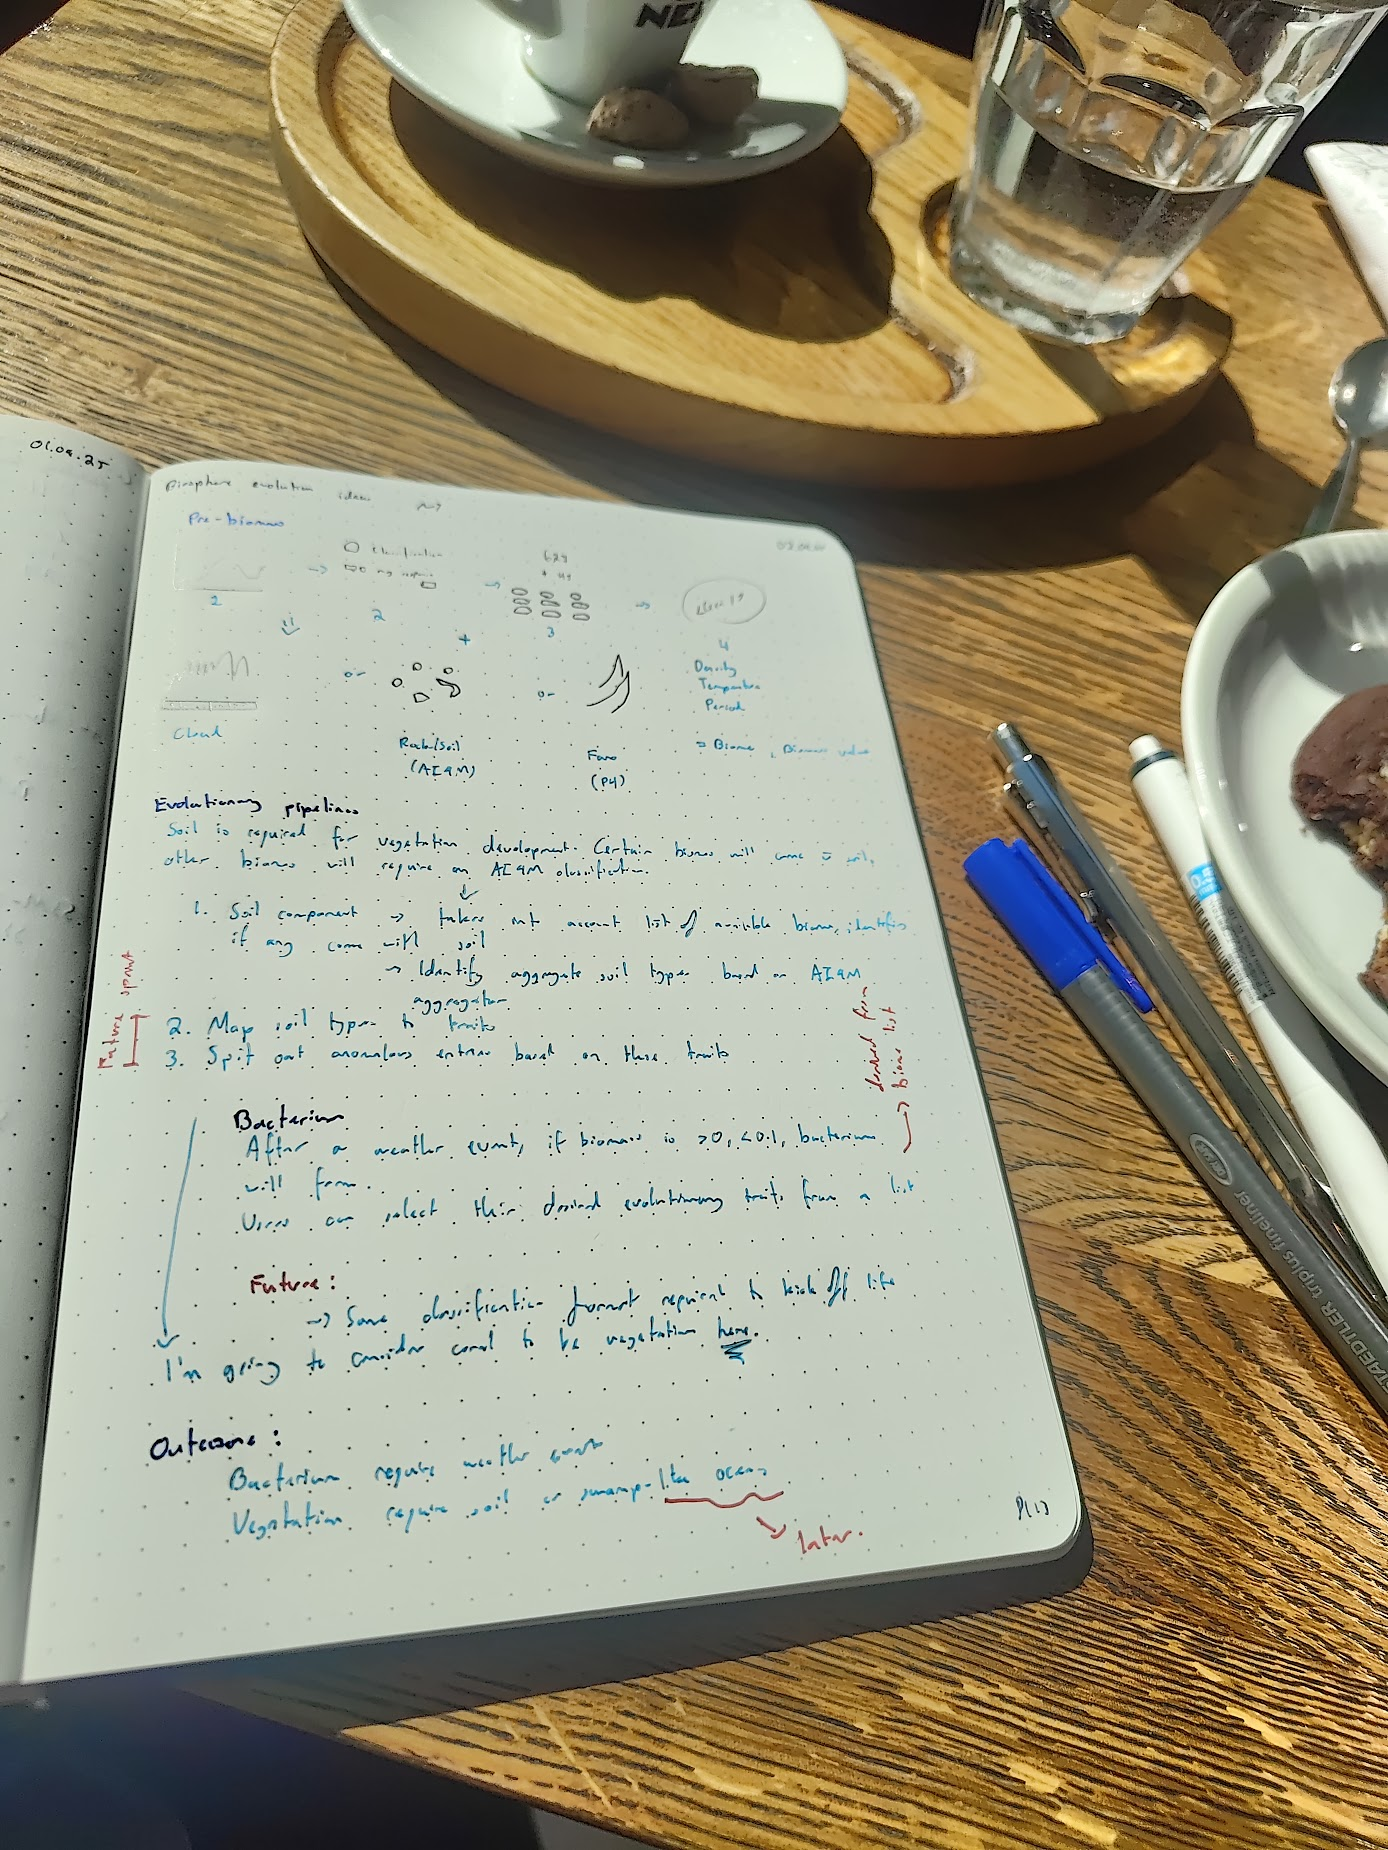 NE
01.09.25
Biosphere evolution ideas
Pre-biomes
Classification
1
2
3
4
+
Density
Temperature
Period
Cloud
or
or
Rock/Soil
(AI4M)
(P4)
⇒ Biome, Biomass value
Evolutionary pipelines
Soil is required for vegetation development. Certain biomes will come w soil,
other biomes will require an AI4M classification.
1. Soil component → takes into account list of available biomes, identifies
if any come with soil
→ Identify aggregate soil types based on AI4M
aggregation
2. Map soil types to traits
3. Spit out anomalous entries based on these traits
Future sprint
derived from
biome list
Bacterium
After a weather event, if biomass is >0, <0.1, bacterium
will form.
Users can select their desired evolutionary traits from a list
Future:
→ Some classification format required to kick off life
I'm going to consider coral to be vegetation here.
Outcome:
Bacterium require weather events
Vegetation require soil or swamp-like oceans
later.
STAEDTLER triplus fineliner